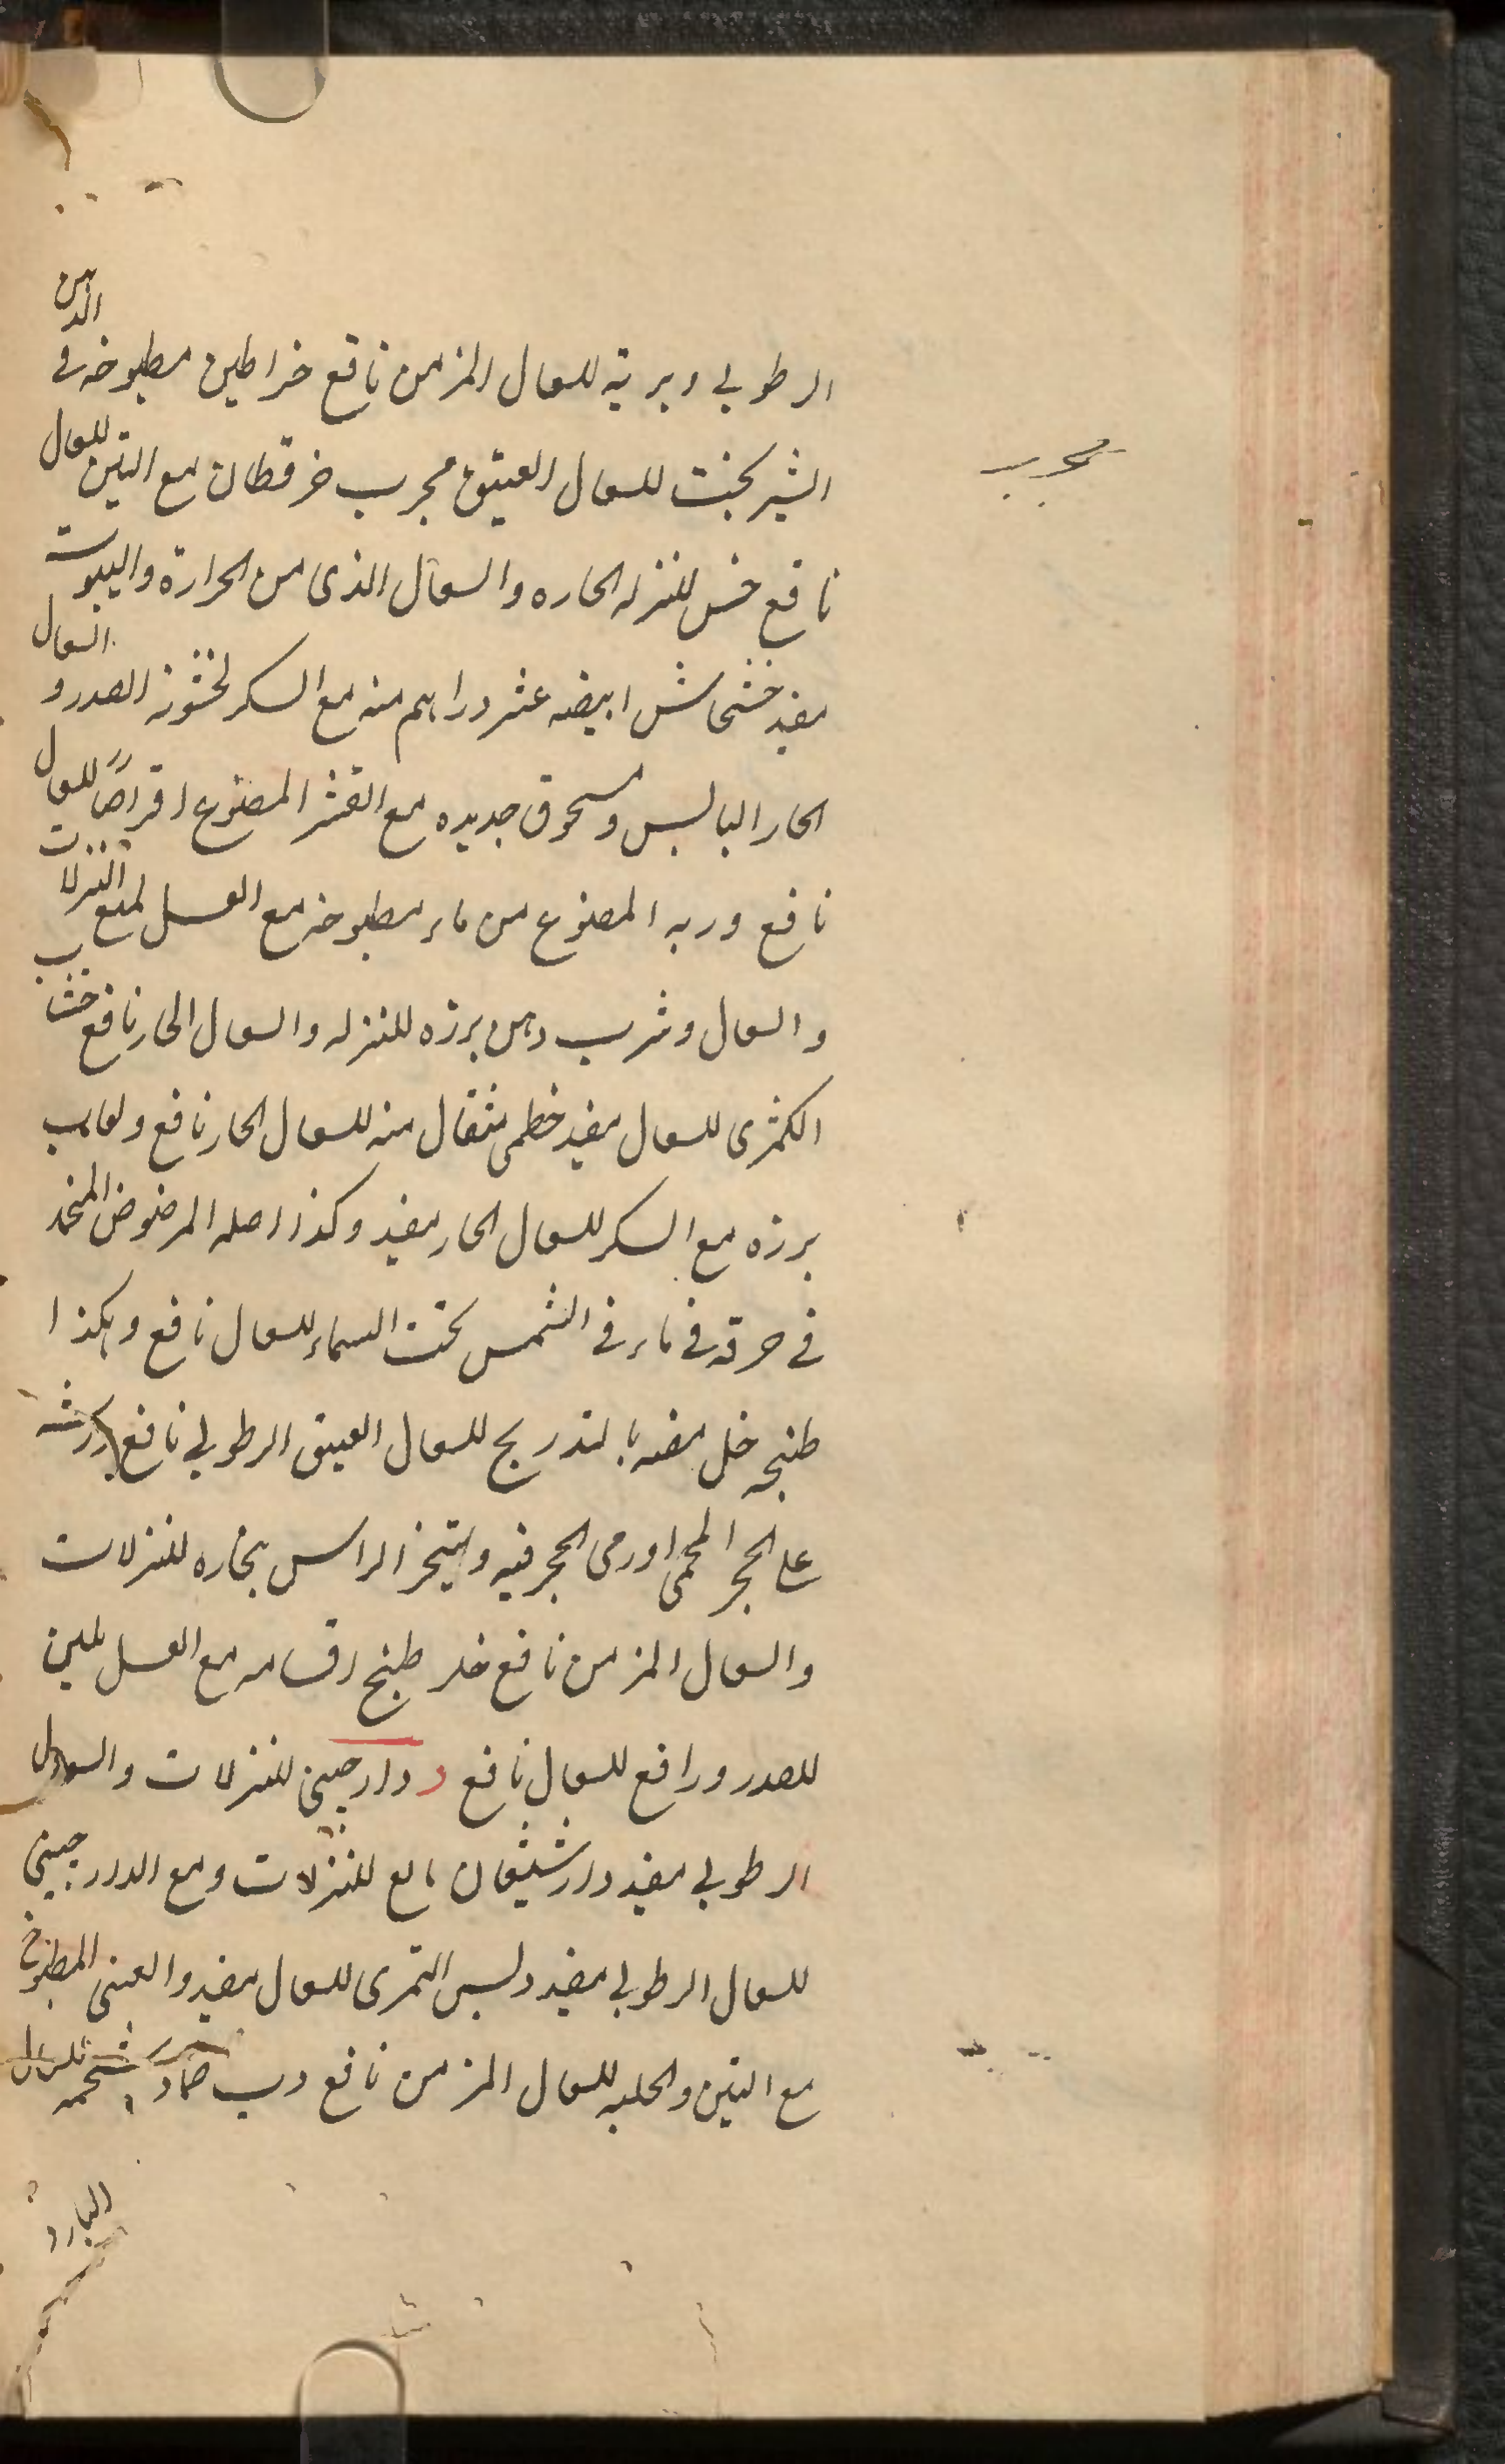 الرطوبي وبريه للسعال المزمن نافع خراطين مطبوخه في الدهن
الشيربخت للسعال العتيق مجرب خرقطان مع التين للسعال
مجرب
نافع خس للنزله الحاره والسعال الذى من الحرارة واليبوست
مفيد خشخاش ابيضه عشر دراهم منه مع السكر لخشونة الصدر و السعال
الحار اليابس ومسحوق جديده مع القشر المصنوع اقراصًا للسعال
نافع وربه المصنوع من ماء مطبوخه مع العسل لمنع النزلات
والسعال وشرب دهن برزه للنزله والسعال الحار نافع خشب
الكمثرى للسعال مفيد خطمى مثقال منه للسعال الحار نافع ولعاب
برزه مع السكر للسعال الحار مفيد وكذا اصله المرضوض المنخد
في خرقه في ماء في الشمس تحت السماء للسعال نافع وهكذا
طبخه خل مصه بالتدريج للسعال العتيق الرطوبي نافع
على الحجر المحمى اورمى الحجر فيه ويتبخر الراس بخاره للنزلات
والسعال المزمن نافع خلر طبخ اقسامه مع العسل ملين
للصدر ورافع للسعال نافع د دارجينى للنزلات والسعال
الرطوبي مفيد دارشيشعان مانع للنزلات ومع الدارجينى
للسعال الرطوبي مفيد دبس التمرى للسعال مفيد والعنبى المطبوخ
مع التين والحلبه للسعال المزمن نافع دب ضماد شحمه للسعال
البارد